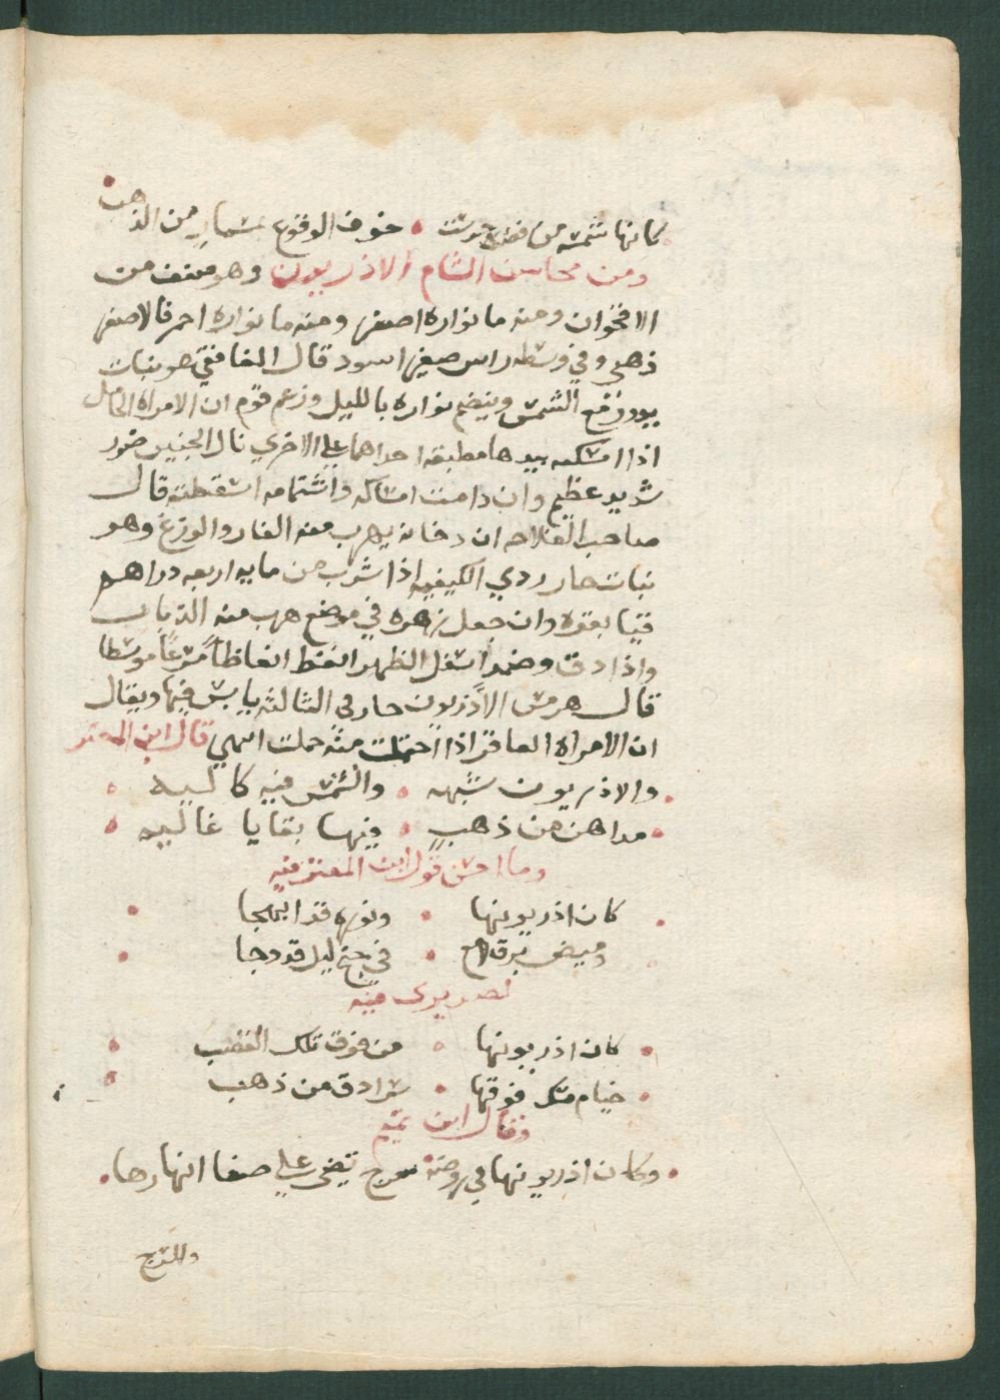 كانها شمسه من فضه حرست • خوف الوقوع بمسمار من الذهب •
ومن محاسن الشام الاذريون وهو صنف من
الاقحوان ومنه ما نواره اصفر ومنه ما نواره احمر فالاصفر
ذهبي وفي وسطه راس صغير اسود قال الغافقي هو نبات
يدور مع الشمس وينضم نواره بالليل وزعم قوم ان الامراه الحامل
اذا امسكته بيدها مطبقه احداهما علي الاخري نال الجنين ضرر
شديد عظيم وان دامت امساكه واشتمامه اسقطته قال
صاحب الفلاحه ان دخانه يهرب منه الفار والوزغ وهو
نبات حار ردي الكيفيه اذا شرب من مايه اربعه دراهم
قيا بقوه وان جعل زهره في موضع هرب منه الذباب
واذا دق وضمد اسفل الظهر انعظ انعاظا مسرعا متوسطا
قال هرمس الاذريون حار في الثالثه يابس فيها ويقال
ان الامراه العاقر اذا احتملت منه حملت انتهي قال ابن المعتز
• والاذريون شبهه • والشمس فيه كاليه •
• مداهن من ذهب • فيها بقايا غاليه •
وما احسن قول ابن المعتز فيه
• كان اذريونها • ونوره قد ابهجا •
وميض برق لاح • في جنح ليل قد دجا •
فيه
• كان اذريونها • من فوق تلك القضب •
• خيام مسك فوقها • سرادق من ذهب •
وقال ابن تميم
• وكان اذريونها في روضه سرج تضي علي صفا انهارها •
والسرج